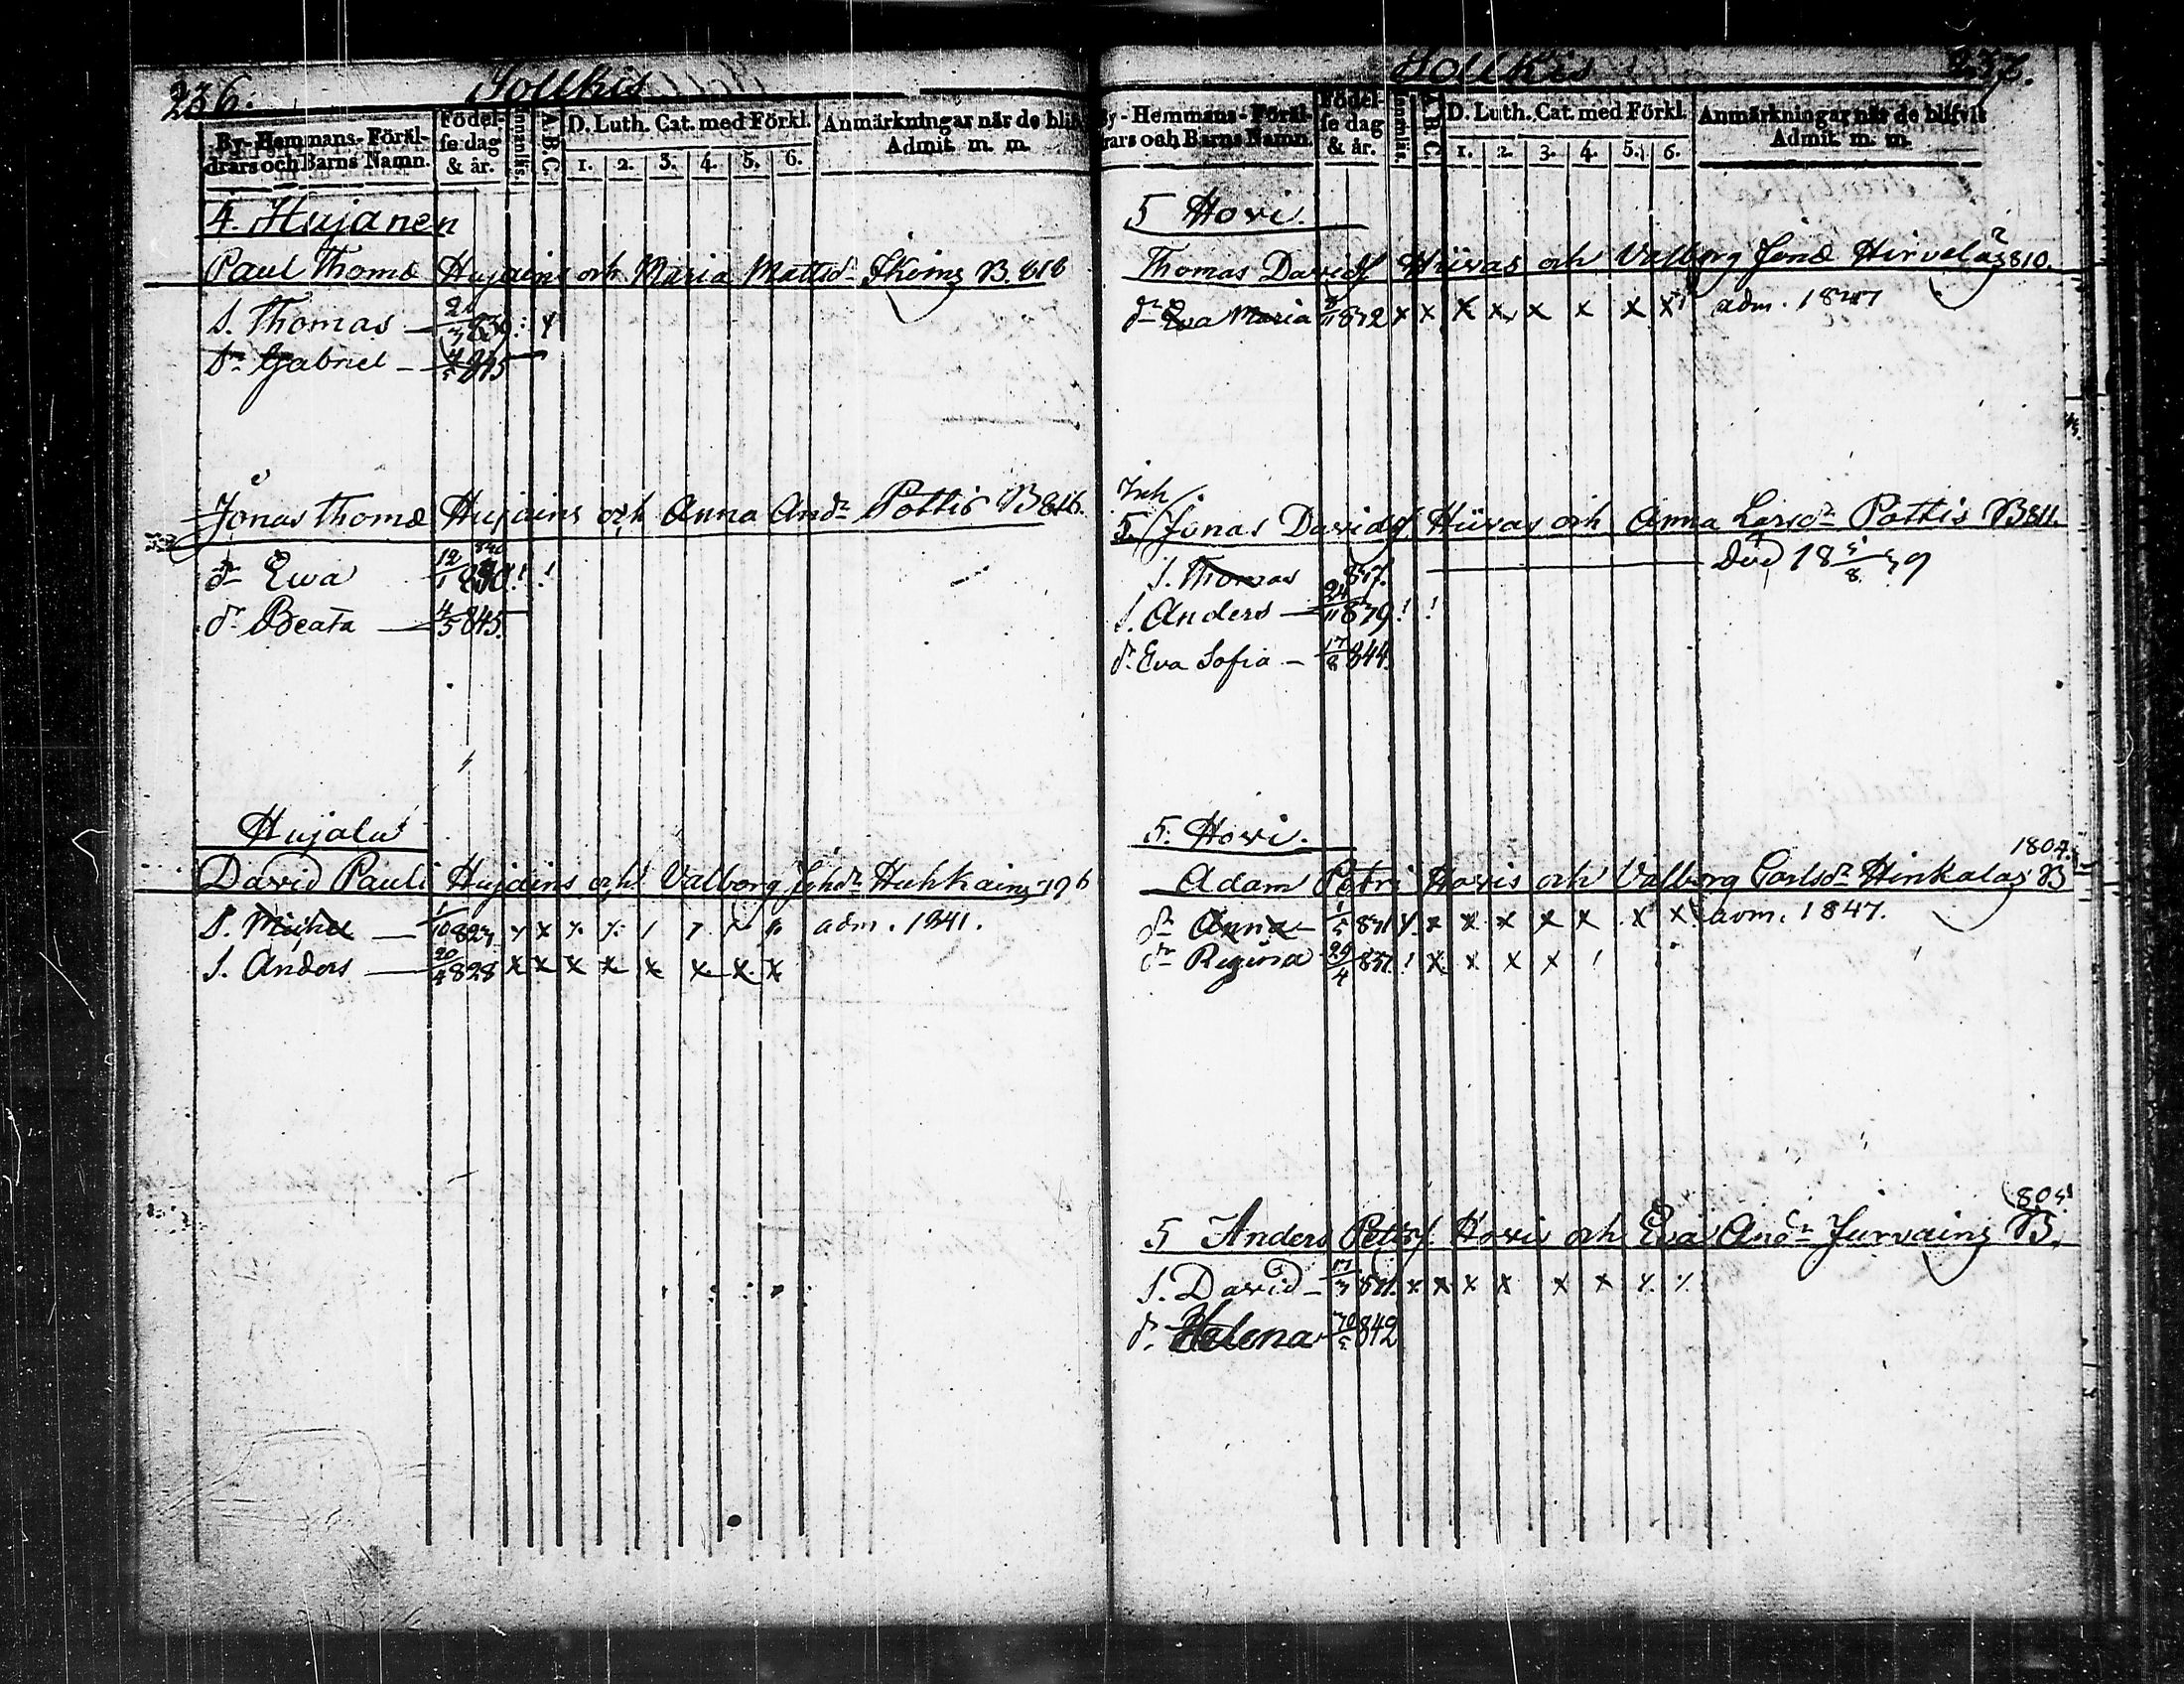 236.
Sollkis
By-Hemmans-Föräl-
drars och Barns Namn.
Födel-
se dag
& år.
Innanläs.
A B C
D. Luth. Cat. med Förkl.
1. 2. 3. 4. 5. 6.
Anmärkningar när de blif
Admit. m. m.
4. Hujanen
Paul Thomæ Hujains och Maria Mattsdr B. 818
S. Thomas
Sn Gabriel
Jonas Thomæ Hujains och Anna Andr Pottis B 816.
dr Ewa
dr Beata 4/5 845.
Hujala
David Pauli Hujains och Valborg Johdr Huhkains 796
S. Michel 1/10 827 adm. 1841.
S. Anders 20/4 828 x x x x x x x x
Sollkis
237.
By-Hemmans-Föräl-
drars och Barns Namn.
Födel-
se dag
& år.
Innanläs.
A B C
D. Luth. Cat. med Förkl.
1. 2. 3. 4. 5. 6.
Anmärkningar när de blifvit
Admit. m. m.
5 Hovi.
Thomas Davidsf Hüvas och Valborg Jonæ Hirveläs 810.
dr Eva Maria x x x x x x x x adm. 1847
Inh
5. Jonas Davidsf Hüvas och Anna Larsdr Pottis B 811.
S. Thomas 837. Död
S. Anders 24/11 839 ! !
dr Eva Sofia 17/8 844.
5. Hovi.
1804.
Adam Petri Hovis och Valborg Carlsdr Hinkalas B
dr Anna x x x x x x x adm. 1847.
dr Regina 29/4 837. ! x x x x !
805
5 Anders Petrsf. Hovis och Eva Andr Jurvains B.
S. David x x x x x x x x
dr Helena 842